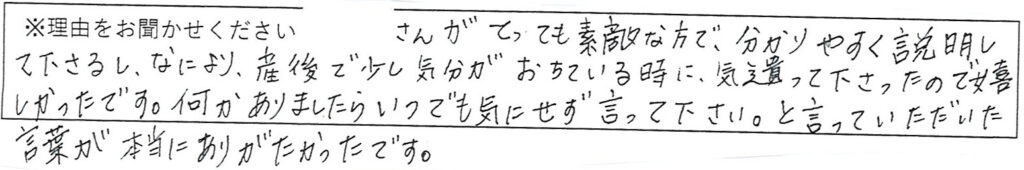 ※理由をお聞かせください さんがとっても素敵な方で、分かりやすく説明し
て下さるし、なにより、産後で少し気分がおちている時に、気遣って下さったので嬉
しかったです。何かありましたらいつでも気にせず言って下さい。と言っていただいた
言葉が本当にありがたかったです。